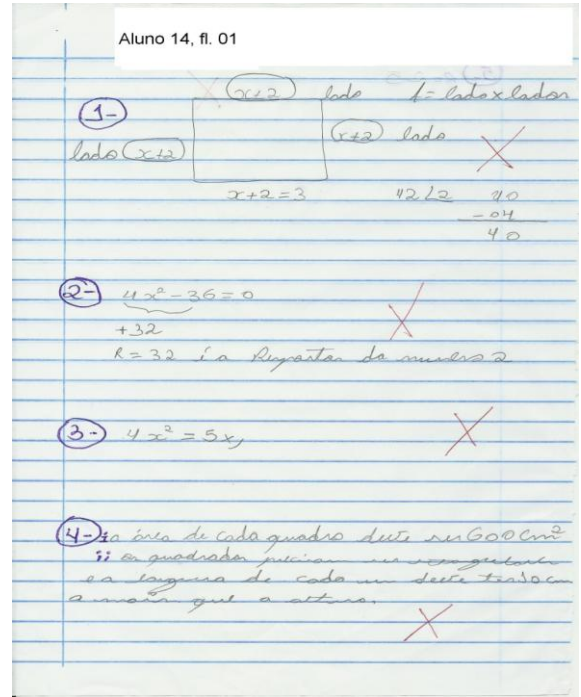 Aluno 14, fl. 01
(x+2) lado A = lado x lados
1-
lado (x+2) (x+2) lado
x+2=3 42 40
- 04
40
2- 4x² - 36 = 0
+32
R = 32 é a Resposta da numero 2
3- 4x² = 5x,
4- a área de cada quadro deve ser 600 cm²
os quadrados precisam ser
e a largura de cada um deve ter 10 cm
a mais que a altura.